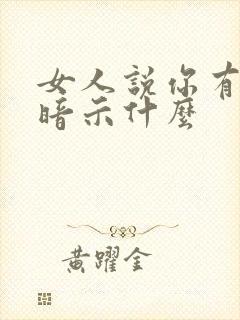 女人説你有
暗示什麼
黃躍金